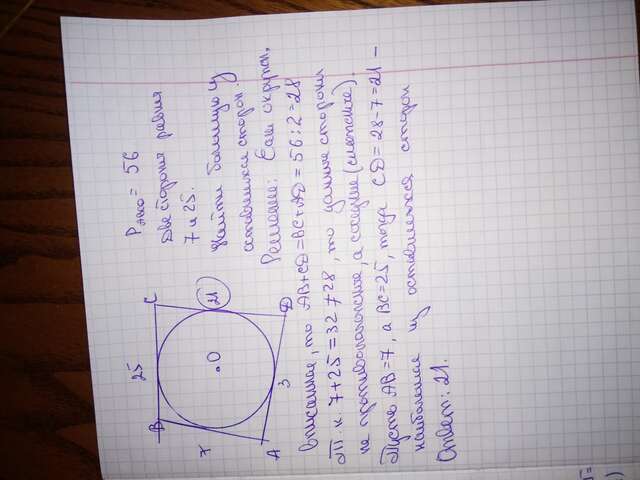 25
B
C
7
O
21
A
3
D
P ABCD = 56
Две стороны равны
7 и 25.
Найти большую из
оставшихся сторон.
Решение: Если окружн.
вписанная, то AB+CD=BC+AD=56:2=28
Т.к. 7+25=32≠28, то данные стороны
не противоположные, а соседние (смежные).
Пусть AB=7, а BC=25, тогда CD=28-7=21 –
наибольшая из оставшихся сторон
Ответ: 21.